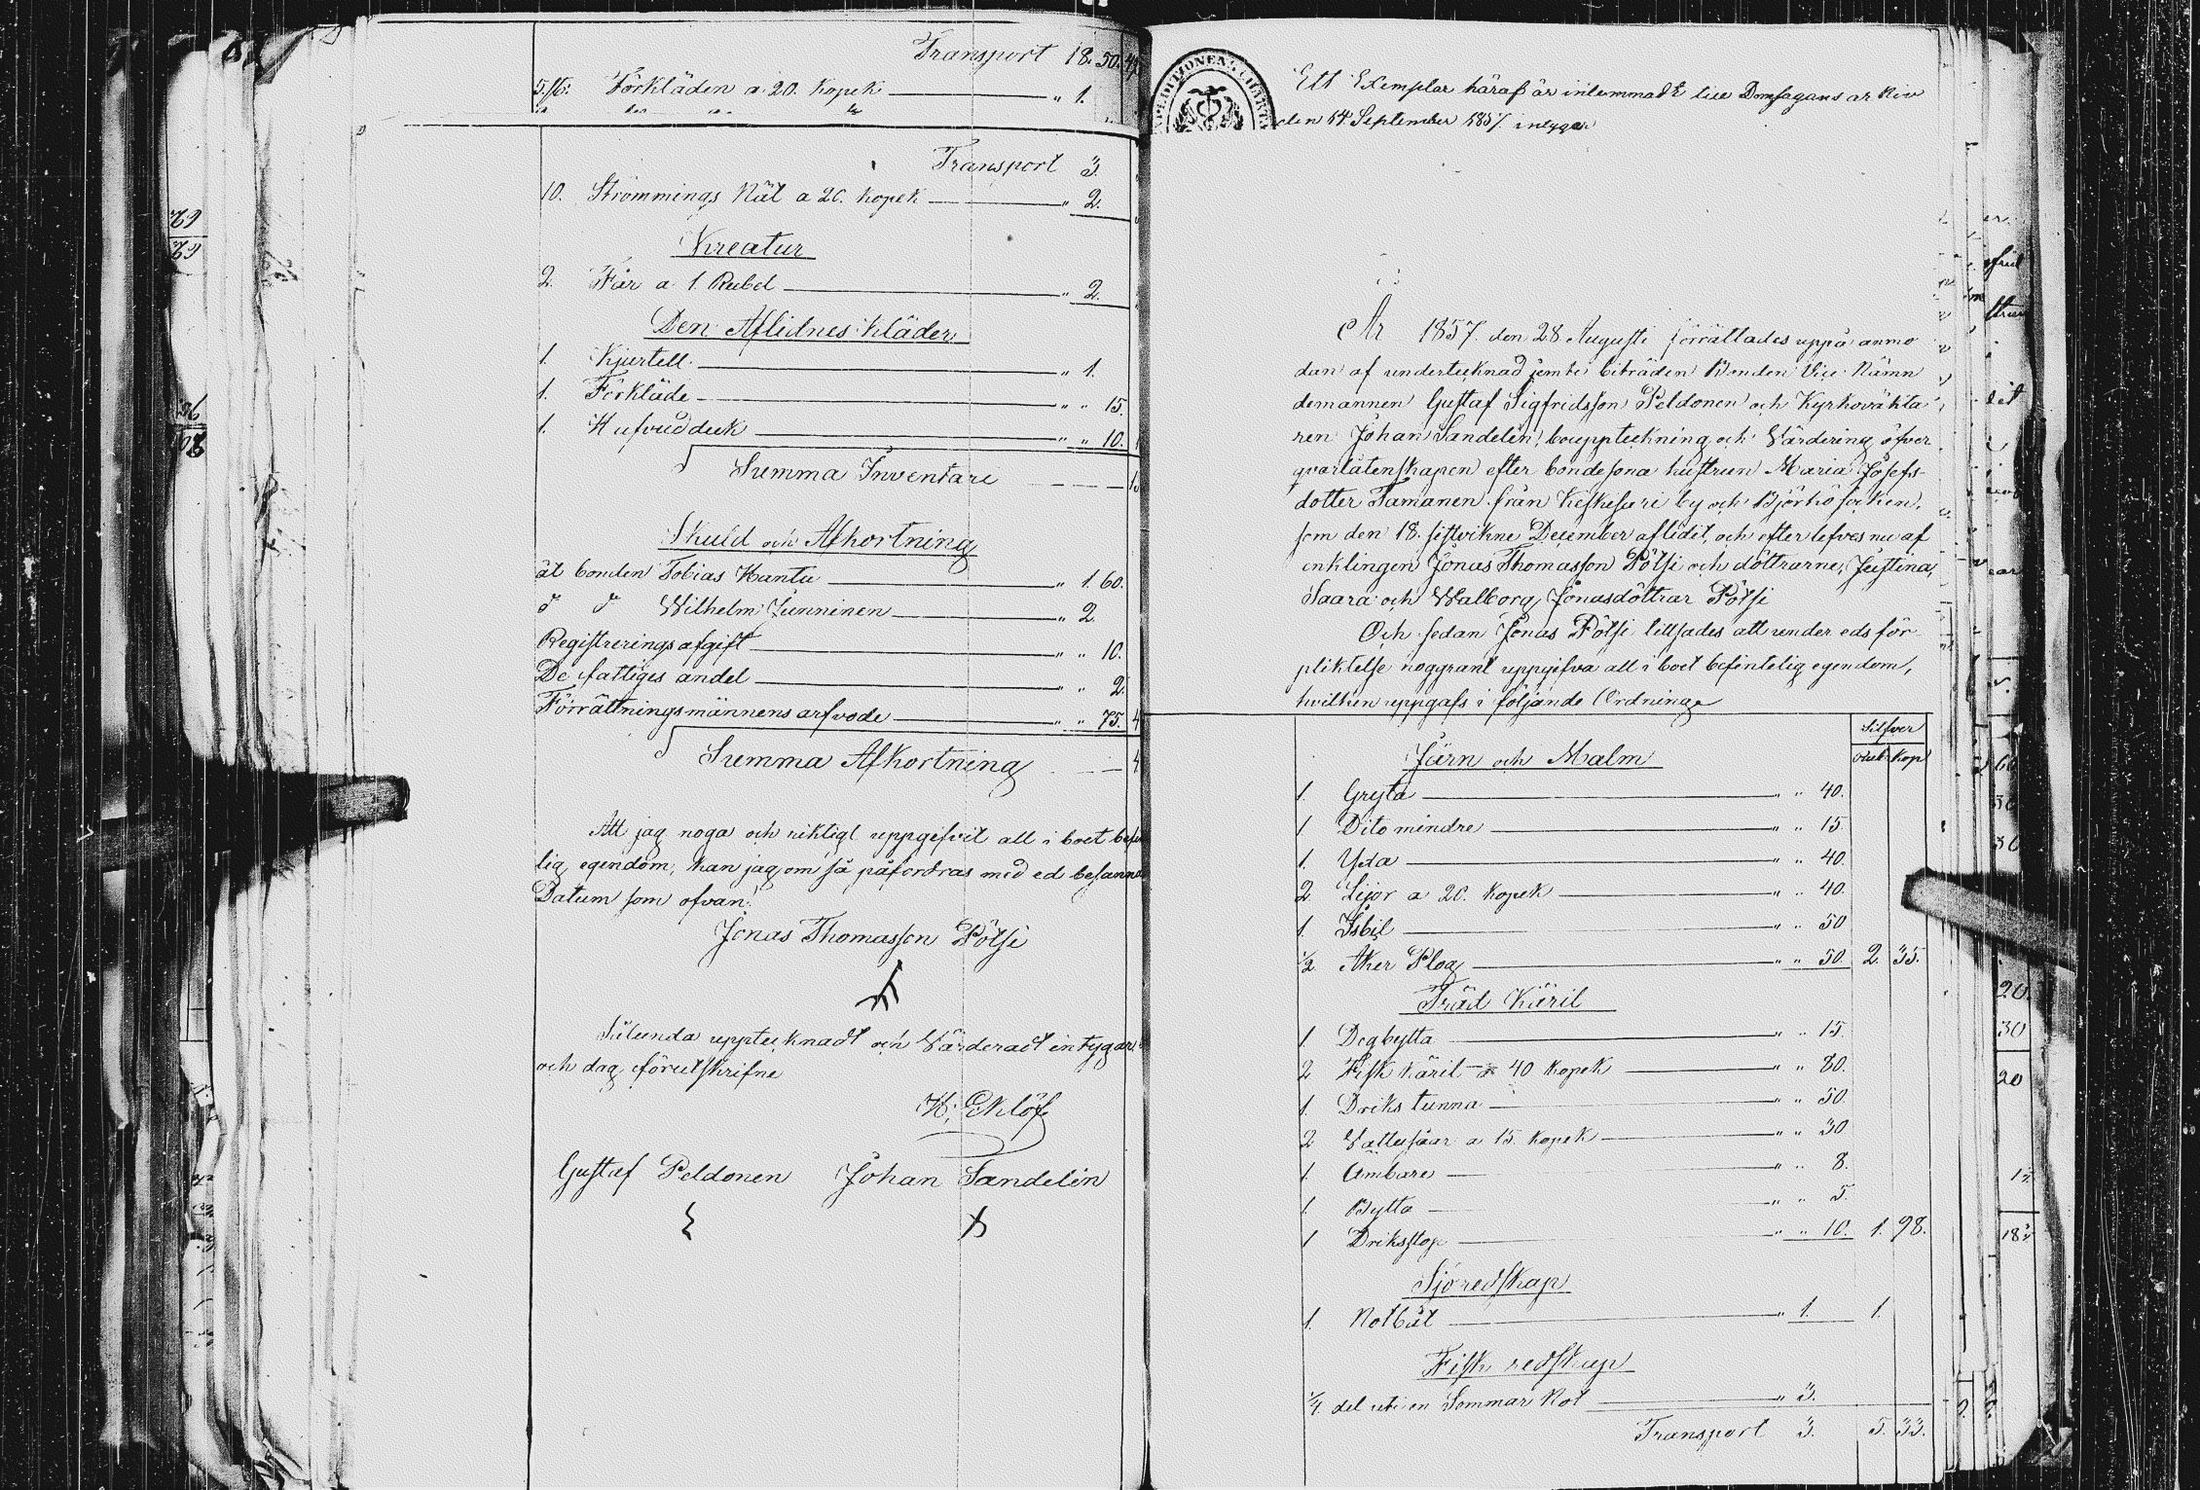 Transport 18. 50.
5/6. Förkläden a 20. Kopek " 1.
Transport 3.
10. Strömmings Nät a 20. kopek " 2.
Kreatur
2. Får a 1. Rubel " 2.
Den Aflidnes kläder
1. Kjurtell " 1.
1. Förkläde " " 15.
1. Hufvudduk " " 10.
Summa Inventarie
Skuld och Afkortning
åt bonden Tobias Hantu " 1. 60.
d d Wilhelm Junninen " 2
Registrerings afgift " " 10.
De fattiges andel " " 2.
Förrättningsmännens arfvode " " 75.
Summa Afkortning
Att jag noga och riktigt uppgifvit all i boet
lig egendom, kan jag om så påfordras med ed
Datum som ofvan.
Jonas Thomasson Pölsi
Sålunda upptecknadt och Värderadt intygar
och dag förutskrifne
H. Eklöf
Gustaf Peldonen Johan Sandelin
Ett Exemplar häraf är inlemmadt till Domsagans arkiv
den 14 September 1857. intygar
År 1857. den 28 Augusti förrättades uppå anmo
dan af undertecknad jemte biträden Bonden Vice Nämn
demannen Gustaf Sigfridsson Peldonen och Kyrkoväkta
ren Johan Sandelin, bouppteckning och Värdering öfver
qvarlåtenskapen efter bondesona hustrun Maria Josefs-
dotter Jamanen från Keskesari by och Björkö socken,
som den 18. sistvikne December aflidit, och efterlefves nu af
enklingen Jonas Thomasson Pölsi och döttrarne, Justina,
Saara och Walborg Jonasdöttrar Pölsi
Och sedan Jonas Pölsi tillsades att under eds för
pliktelse noggrant uppgifva all i boet befintelig egendom,
hvilken uppgafs i följande Ordning
Silfver
Rub Kop
Järn och Malm
1. Gryta " " 40.
1 Dito mindre " " 15
1. Yxa " " 40.
2 Lijor a 20. Kopek " " 40.
1. Isbil " " 50
1/2 Aker Plog " " 50. 2. 35.
Träd Käril
1 Degbytta " " 15.
2 Fisk käril a 40 Kopek " " 80.
1. Driks tunna " " 50.
2 Vattusåar a 15. Kopek " " 30
1. Ämbare " " 8.
1. Bytta " " 5.
1 Driksstop " " 10. 1. 98.
Sjöredskap
1. Notbåt " 1. 1.
Fisk redskap
1/4 del uti en Sommar Not " 3.
Transport 3. 5. 33.